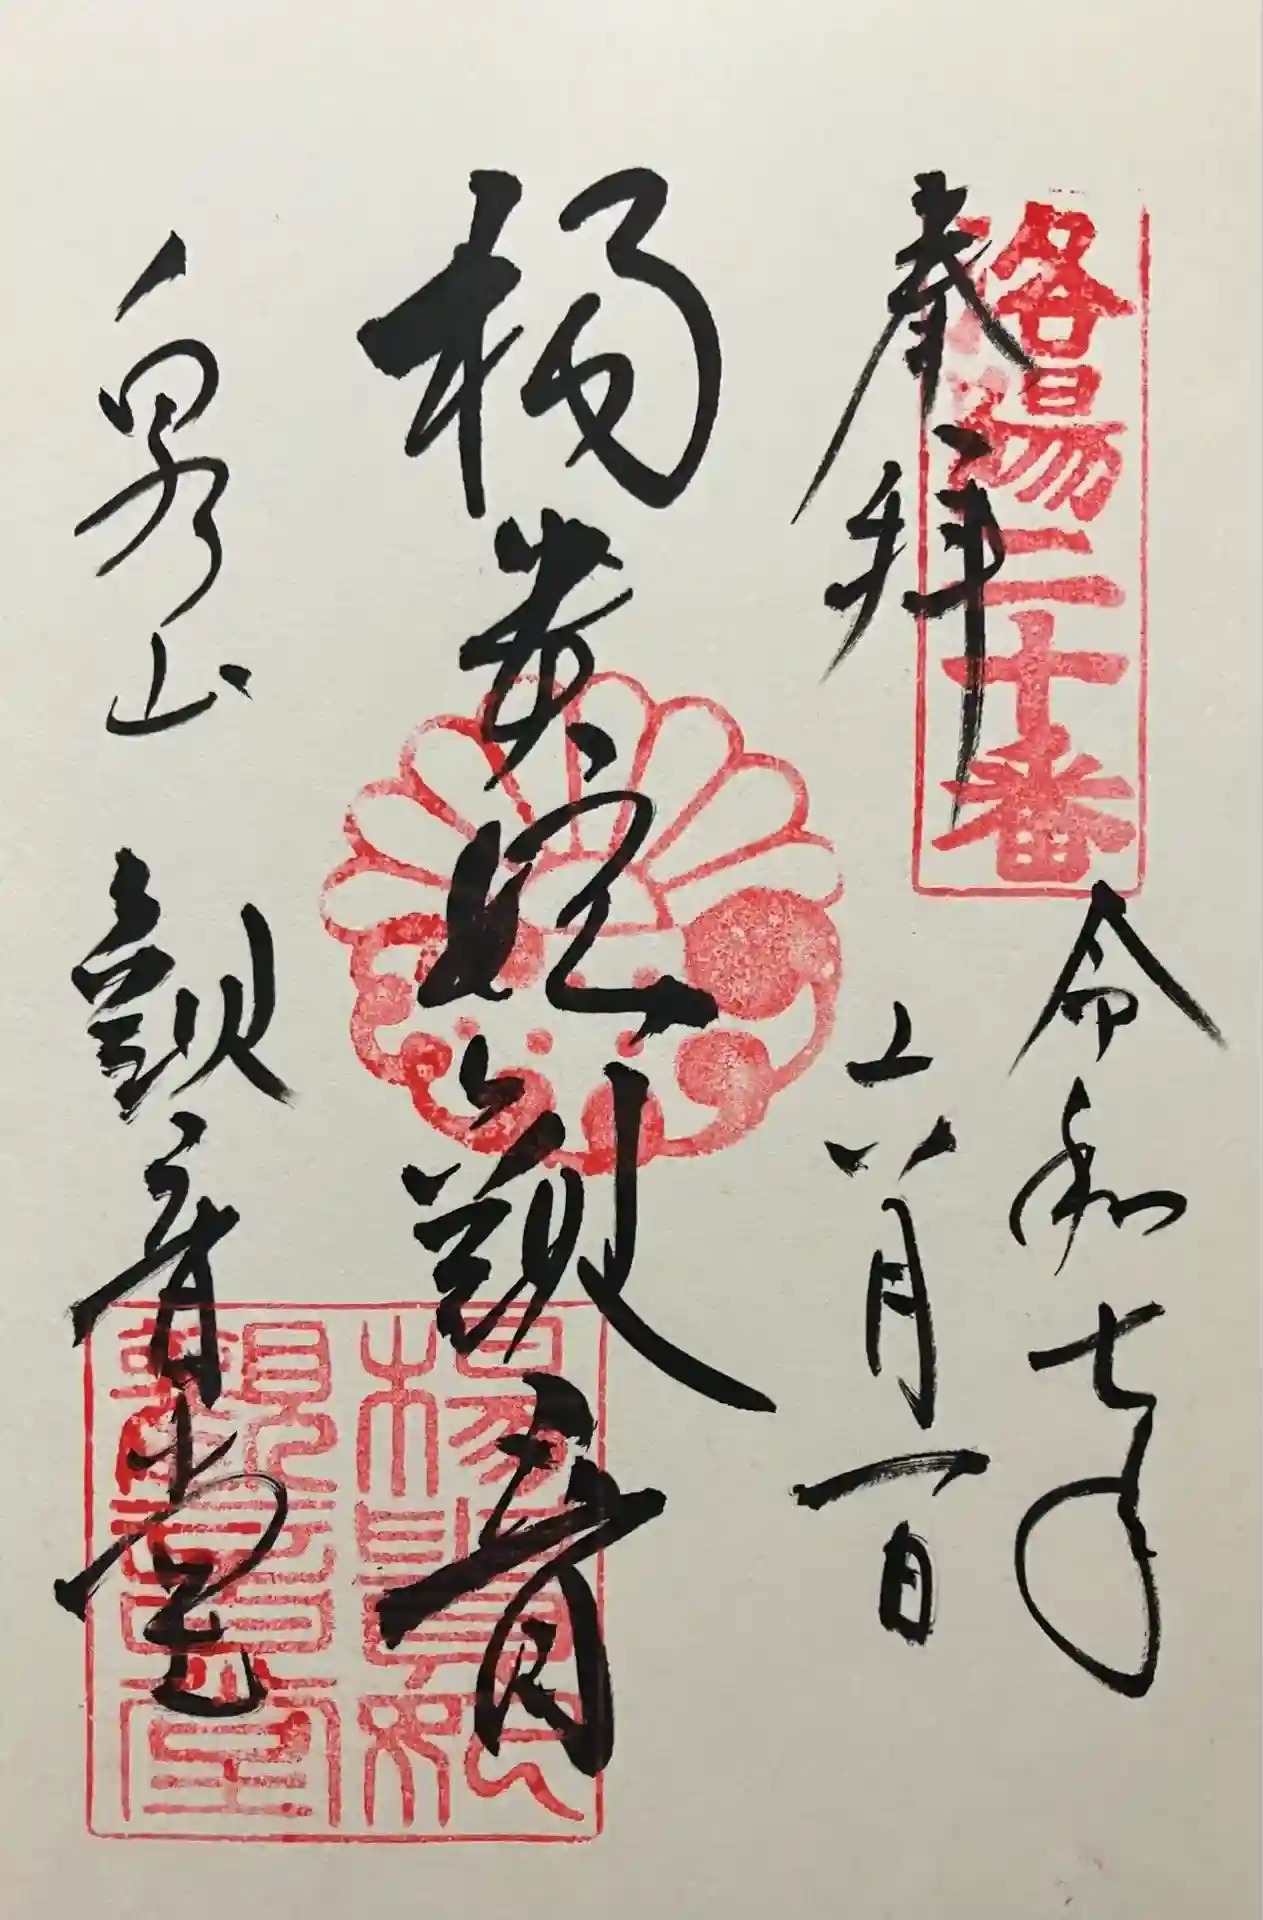 洛陽二十番
奉拝
令和七年
六月一日
楊貴妃観音
泉山
観音堂
楊貴妃
観音堂